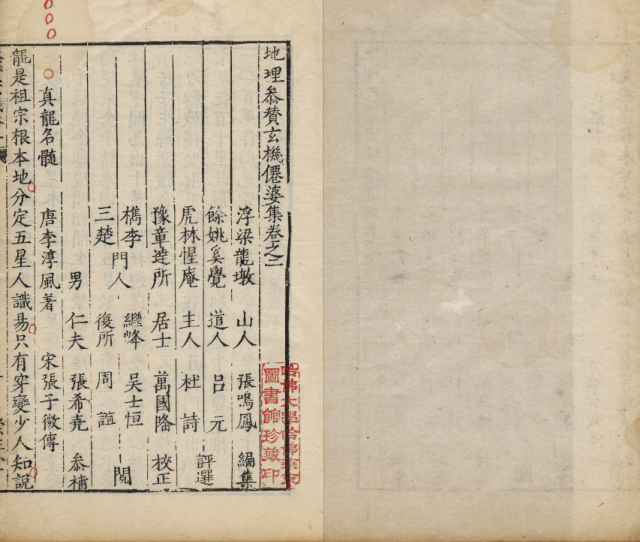 地理叅贊玄機僊婆集卷之二
浮梁龍墩 山人 張鳴鳳 編集
餘姚奚覺 道人 呂元
虎林惺庵 主人 杜詩 評選
豫章達所 居士 萬國隆 校正
檇李 門人 繼峰 吳士恒
三楚 復所 周誼 閱
男 仁夫 張希堯 叅補
真龍名髓 唐李淳風著 宋張子微傳
龍是祖宗根本地分定五星人識易只有穿變少人知說
圖書館珍藏印